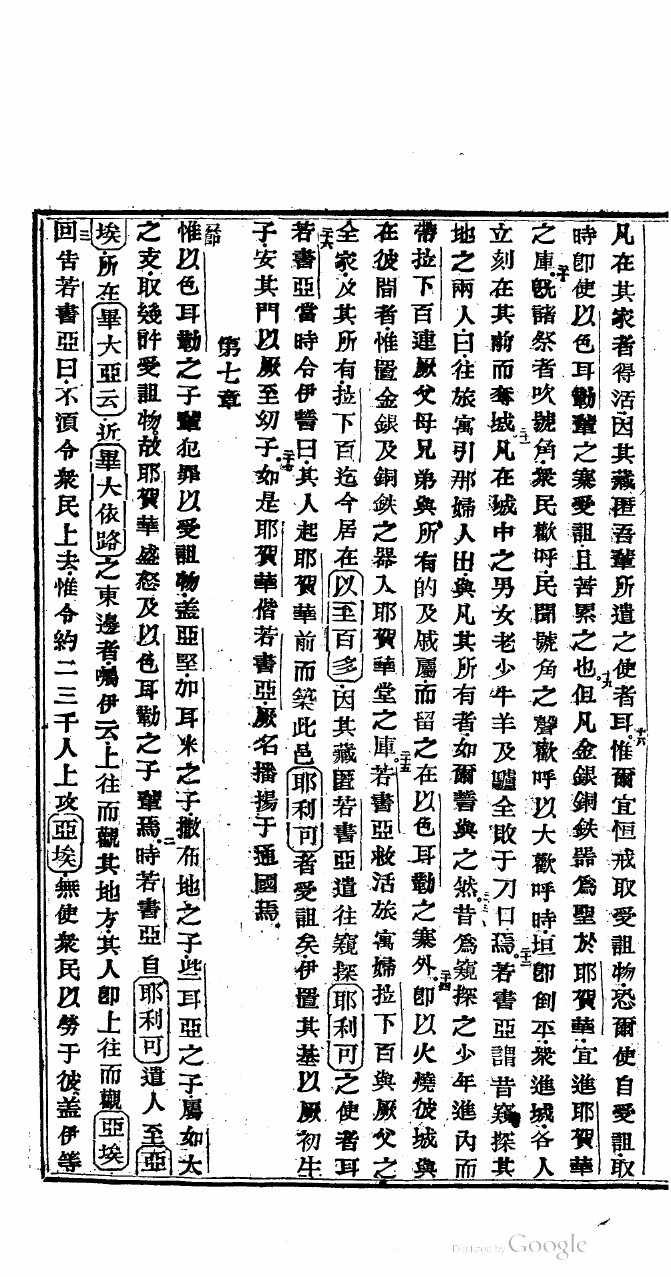 凡在其家者得活因其藏匿吾輩所遣之使者耳十八惟爾宜恒戒取受詛物恐爾使自受詛取
時卽使以色耳勒輩之寨受詛且苦累之也十九但凡金銀銅鉄噐為聖於耶賀華宜進耶賀華
之庫二十旣諸祭者吹號角衆民歡呼民聞號角之聲歡呼以大歡呼時垣卽倒平衆進城各人
立刻在其前而奪城二一凡在城中之男女老少牛羊及驢全敗于刀口焉二二若書亞謂昔窺探其
地之兩人曰往旅寓引那婦人出與凡其所有者如爾誓與之然二三昔為窺探之少年進內而
帶拉下百連厥父母兄弟與所有的及戚屬而留之在以色耳勒之寨外二十四卽以火燒彼城與
在彼間者惟置金銀及銅鉄之器入耶賀華堂之庫二十五若書亞救活旅寓婦拉下百與厥父之
全家及其所有拉下百迄今居在以至百多因其藏匿若書亞遣往窺探耶利可之使者耳
二六若書亞當時令伊誓曰其人起耶賀華前而築此邑耶利可者受詛矣伊置其基以厥初生
子安其門以厥至幼子二十七如是耶賀華偕若書亞厥名播揚于通國焉
第七章
一節惟以色耳勒之子輩犯罪以受詛物盖亞堅加耳米之子撒布地之子些耳亞之子屬如大
之支取幾許受詛物故耶賀華盛怒及以色耳勒之子輩焉二時若書亞自耶利可遣人至亞
埃所在畢大亞云近畢大依路之東邊者囑伊云上往而觀其地方其人卽上往而觀亞埃
三回告若書亞曰不須令衆民上去惟令約二三千人上攻亞埃無使衆民以勞于彼盖伊等
Digitized by Google